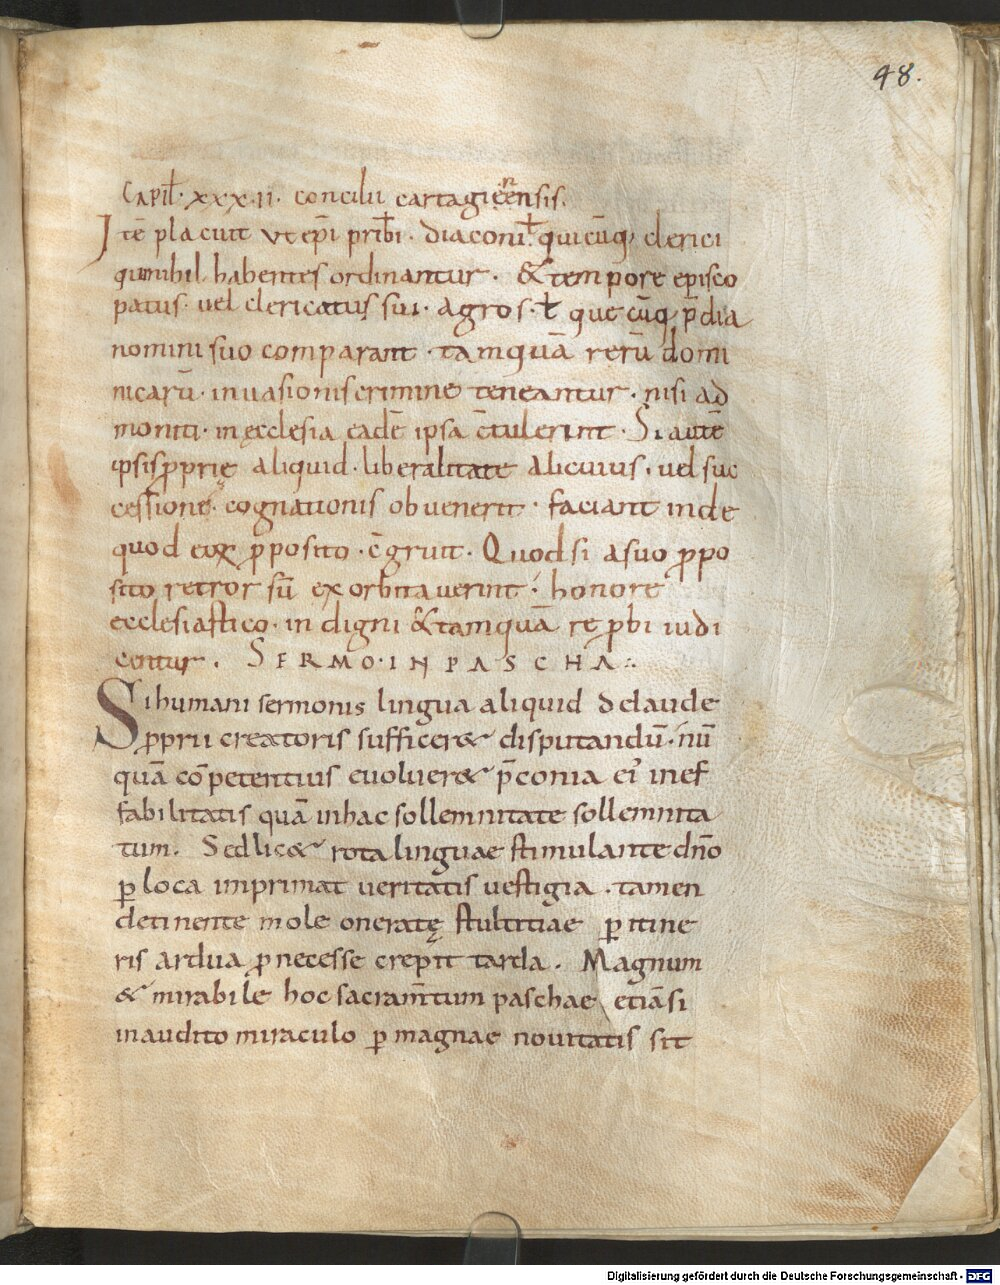 48.
Capitł· xxx·ii· concilii cartagienensis.
Itē placuit ut ep̄i prīb̄i· diaconi· ł quicūq; clerici
qui nihil habentes ordinantur· & tempore episco
patus· uel clericatus sui· agros· ł quecūq; p̱dia
nomini suo comparant· tamquā rerū domi
nicarū· inuasionis crimine teneantur· nisi ad
moniti· in ęcclesia eadē ipsa c̄tulerint· Si autē
ipsis proprię aliquid· liberalitate alicuius· uel suc
cessione· cognationis obuenerit· faciant inde
quod eoꝝ p̱posito· c̄gruit· Quod si a suo p̱po
sito retrorsū exorbitauerint· honore
ecclesiastico· indigni & tamquā rep̱bi iudi
centur. SERMO·IN PASCHA·:
Si humani sermonis lingua aliquid de laude
p̱prii creatoris sufficer& disputandū· nū
quā cōpetentius euoluer& p̄conia ei' inef
fabilitatis quā in hac sollemnitate sollemnita
tum. Sed lic& rota linguae stimulante dn̄o
ꝑ loca imprimat ueritatis uestigia· tamen
detinente mole oneratę stultitiae ꝑ itine
ris ardua p̱necesse crep̄it tarda. Magnum
& mirabile hoc sacram̄tum paschae etiā si
inaudito miraculo ꝑ magnae nouitatis sit
Digitalisierung gefördert durch die Deutsche Forschungsgemeinschaft - DFG